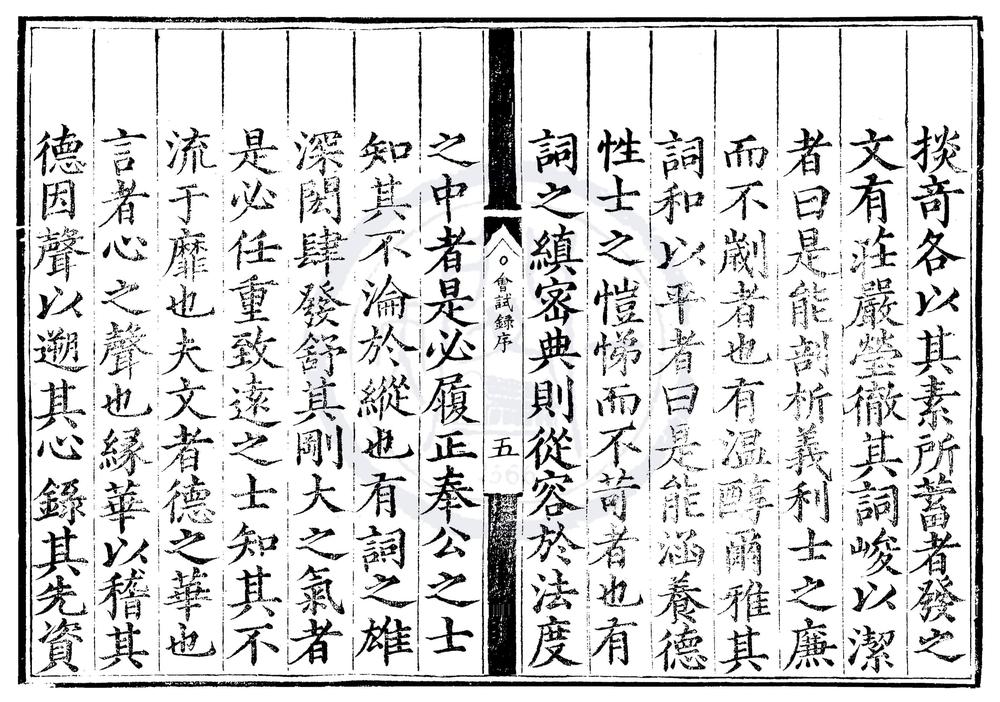 掞奇各以其素所蓄者發之
文有莊嚴瑩徹其詞峻以潔
者曰是能剖析義利士之廉
而不劌者也有温醇爾雅其
詞和以平者曰是能涵養德
性士之愷悌而不苛者也有
詞之縝密典則從容於法度
會試録序
五
之中者是必履正奉公之士
知其不淪於縱也有詞之雄
深閎肆發舒其剛大之氣者
是必任重致遠之士知其不
流于靡也夫文者德之華也
言者心之聲也緣華以稽其
德因聲以遡其心錄其先資